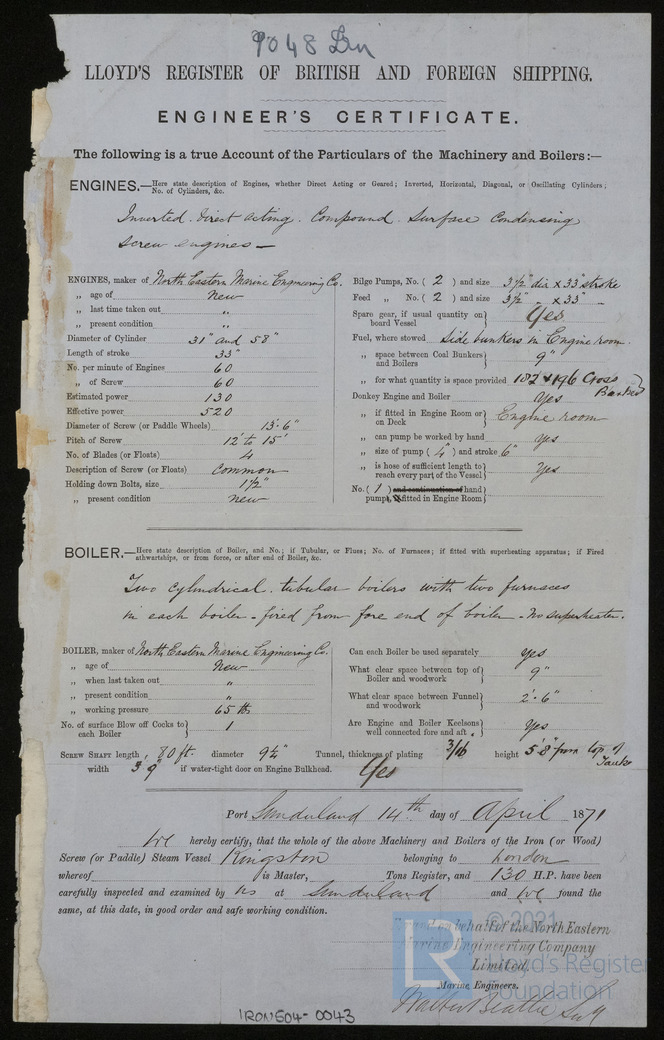 9048 Iron
LLOYD'S REGISTER OF BRITISH AND FOREIGN SHIPPING.
ENGINEER'S CERTIFICATE.
The following is a true Account of the Particulars of the Machinery and Boilers:—
ENGINES.—Here state description of Engines, whether Direct Acting or Geared; Inverted, Horizontal, Diagonal, or Oscillating Cylinders; No. of Cylinders, &c.
Inverted. Direct acting. Compound. Surface Condensing
Screw engines —
ENGINES, maker of North Eastern Marine Engineering Co.
„ age of New
„ last time taken out „
„ present condition „
Diameter of Cylinder 31" and 58"
Length of stroke 33"
No. per minute of Engines 60
„ of Screw 60
Estimated power 130
Effective power 520
Diameter of Screw (or Paddle Wheels) 13'.6"
Pitch of Screw 12' to 15'
No. of Blades (or Floats) 4
Description of Screw (or Floats) Common
Holding down Bolts, size 1 1/2"
„ present condition New
Bilge Pumps, No. ( 2 ) and size 3 1/2" dia x 33" stroke
Feed „ No. ( 2 ) and size 3 1/2" „ x 33" „
Spare gear, if usual quantity on board Vessel } Yes
Fuel, where stowed Side bunkers in Engine room.
„ space between Coal Bunkers and Boilers } 9"
„ for what quantity is space provided 182 & 196 Cross Bunker
Donkey Engine and Boiler Yes
„ if fitted in Engine Room or on Deck } Engine room
„ can pump be worked by hand Yes
„ size of pump ( 4" ) and stroke 6"
„ is hose of sufficient length to reach every part of the Vessel } Yes
No. ( 1 ) and continuation of hand pumps, fitted in Engine Room }
BOILER.—Here state description of Boiler, and No.; if Tubular, or Flues; No. of Furnaces; if fitted with superheating apparatus; if Fired athwartships, or from force, or after end of Boiler, &c.
Two cylindrical. tubular boilers with two furnaces
in each boiler - fired from fore end of boiler - No superheater.
BOILER, maker of North Eastern Marine Engineering Co.
„ age of New
„ when last taken out „
„ present condition „
„ working pressure 65 lbs
No. of surface Blow off Cocks to each Boiler } 1
Can each Boiler be used separately Yes
What clear space between top of Boiler and woodwork } 9"
What clear space between Funnel and woodwork } 2'.6"
Are Engine and Boiler Keelsons well connected fore and aft. } Yes
SCREW SHAFT length 80 ft. diameter 9 1/4" Tunnel, thickness of plating 3/16 height 5'8" from top of Tanks
width 3'9" if water-tight door on Engine Bulkhead. Yes
Port Sunderland 14th day of April 1871
We hereby certify, that the whole of the above Machinery and Boilers of the Iron (or Wood)
Screw (or Paddle) Steam Vessel Kingston belonging to London
whereof is Master, Tons Register, and 130 H.P. have been
carefully inspected and examined by us at Sunderland and We found the
same, at this date, in good order and safe working condition.
on behalf of the North Eastern
Marine Engineering Company
Limited.
Marine Engineers.
Walter Beattie
IRON504-0043
LR
© 2021
Lloyd's Register
Foundation